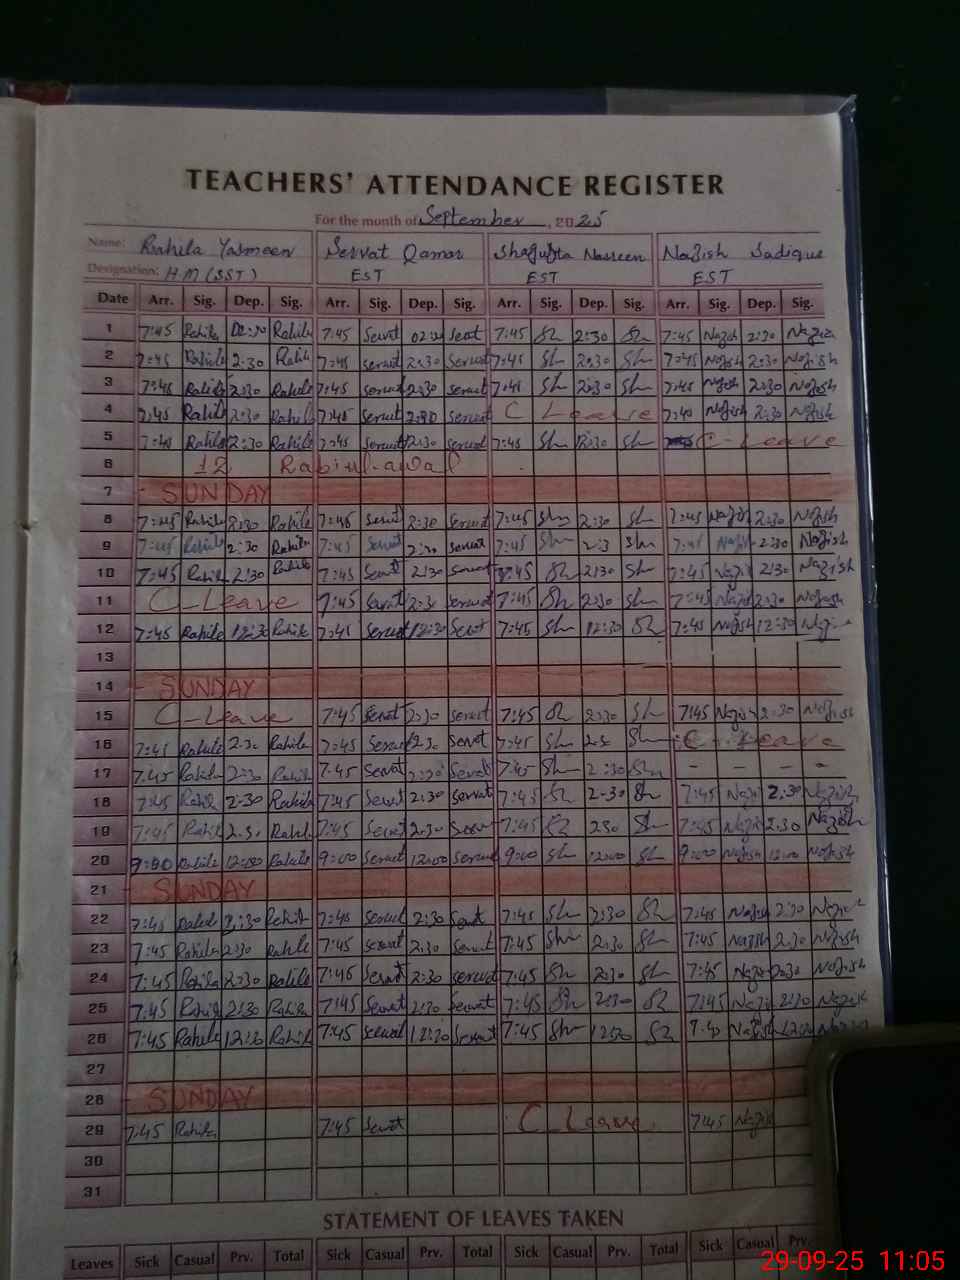 TEACHERS' ATTENDANCE REGISTER
For the month of September, 2025
Name: Rahila Yasmeen Servat Qamar Shagufta Nasreen Nazish Sadique
Designation: H.M (SST) EST EST EST
Date Arr. Sig. Dep. Sig. Arr. Sig. Dep. Sig. Arr. Sig. Dep. Sig. Arr. Sig. Dep. Sig.
1 7:45 Rahila 02:30 Rahila 7:45 Servat 7:45 Sh 2:30 Sh 7:45 Nazish 2:30
2 7:45 Rahila 2:30 Rahila 7:45 servat 2:30 Servat 7:45 Sh 2:30 Sh 7:45 Nazish 2:30 Nazish
3 7:45 Rahila 2:30 Rahila 7:45 servat 2:30 servat 7:45 Sh 2:30 Sh 7:45 Nazish 2:30 Nazish
4 7:45 Rahila 2:30 Rahila 7:45 servat 2:30 servat C Leave 7:40 Nazish 2:30 Nazish
5 7:45 Rahila 2:30 Rahila 7:45 servat 2:30 servat 7:45 Sh 12:30 Sh C-Leave
6 12 Rabiul-awal
7 SUNDAY
8 7:45 Rahila 2:30 Rahila 7:45 Servat 2:30 Servat 7:45 Sh 2:30 Sh 7:45 Nazish 2:30 Nazish
9 7:45 Rahila 2:30 Rahila 7:45 Servat servat 7:45 Sh 2:3 Sh 7:45 Nazish 2:30 Nazish
10 7:45 Rahila 2:30 Rahila 7:45 Servat 2:30 servat 7:45 Sh 2:30 Sh 7:45 Nazish 2:30 Nazish
11 C-Leave 7:45 servat 2:30 servat 7:45 Sh 2:30 Sh 7:45 Nazish 2:30 Nazish
12 7:45 Rahila 12:30 Rahila 7:45 Servat 12:30 Servat 7:45 Sh 12:30 Sh 7:45 Nazish 12:30
13
14 SUNDAY
15 C-Leave 7:45 Servat 2:30 servat 7:45 Sh 2:30 Sh 7:45 Nazish 2:30 Nazish
16 7:45 Rahila 2:30 Rahila 7:45 Servat 2:30 Servat 7:45 Sh Sh C-Leave
17 7:45 Rahila 2:30 Rahila 7:45 Servat Servat 7:45 Sh 2:30 Sh - - - -
18 7:45 Rahila 2:30 Rahila 7:45 Servat 2:30 servat 7:45 Sh 2:30 Sh 7:45 Nazish 2:30 Nazish
19 7:45 Rahila 2:30 Rahila 7:45 Servat 2:30 Servat 7:45 Sh 230 Sh 7:45 Nazish 2:30 Nazish
20 9:00 Rahila 12:00 Rahila 9:00 Servat 12:00 servat 9:00 Sh 12:00 Sh 9:00 Nazish 12:00 Nazish
21 SUNDAY
22 7:45 Rahila 2:30 Rahila 7:45 Servat 2:30 Servat 7:45 Sh 2:30 Sh 7:45 Nazish 2:30 Nazish
23 7:45 Rahila 2:30 Rahila 7:45 servat 2:30 Servat 7:45 Sh 2:30 Sh 7:45 Nazish 2:30 Nazish
24 7:45 Rahila 2:30 Rahila 7:45 Servat 2:30 servat 7:45 Sh 2:30 Sh 7:45 Nazish 2:30 Nazish
25 7:45 Rahila 2:30 Rahila 7:45 Servat 2:30 Servat 7:45 Sh 2:30 Sh 7:45 Nazish 2:30 Nazish
26 7:45 Rahila 12:30 Rahila 7:45 servat 12:30 Servat 7:45 Sh 12:30 Sh Nazish Nazish
27
28 SUNDAY
29 7:45 Rahila 7:45 Servat C Leave 7:45 Nazish
30
31
STATEMENT OF LEAVES TAKEN
Leaves Sick Casual Prv. Total Sick Casual Prv. Total Sick Casual Prv. Total Sick Casual Prv.
29-09-25 11:05